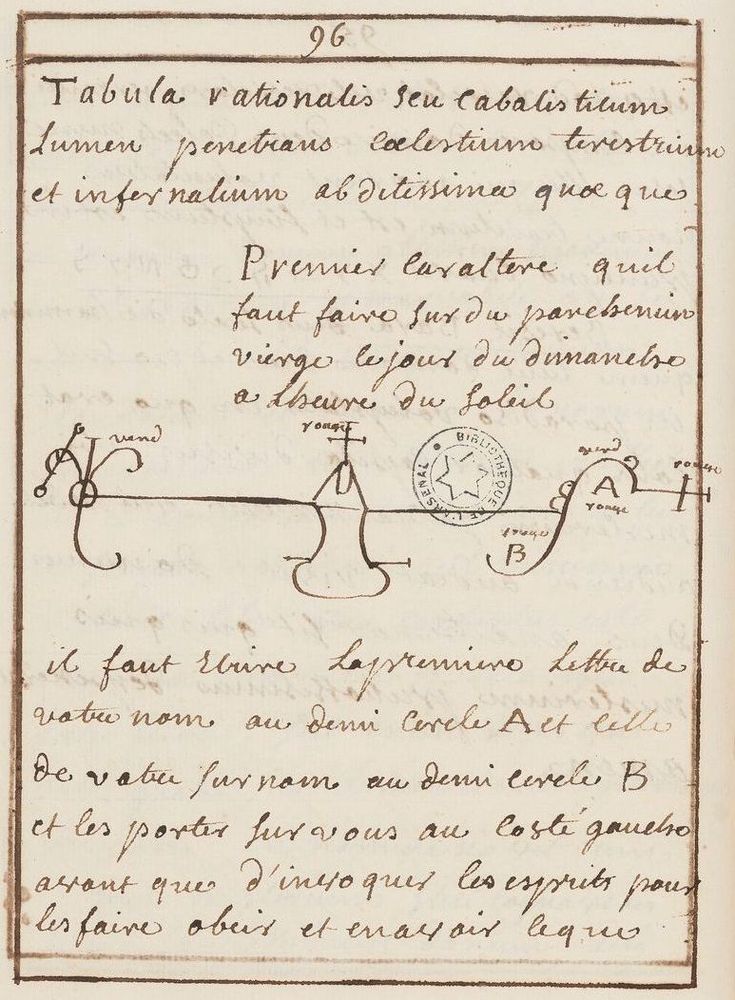 96
Tabula rationalis seu Cabalisticum
Lumen penetrans Cœlestium terestrium
et infernalium abditissima quœ que
Premier Caractere quil
faut faire sur du parchemin
vierge le jour du dimanche
a Lheure du Soleil
verd
rouge
BIBLIOTHEQUE DE L'ARSENAL
verd
rouge
A
rouge
rouge
B
il faut Ecrire La premiere Lettre de
votre nom au demi Cercle A et Celle
de votre surnom au demi cercle B
et les porter sur vous au Costé gauche
avant que d'invoquer les esprits pour
les faire obeir et en avoir le que